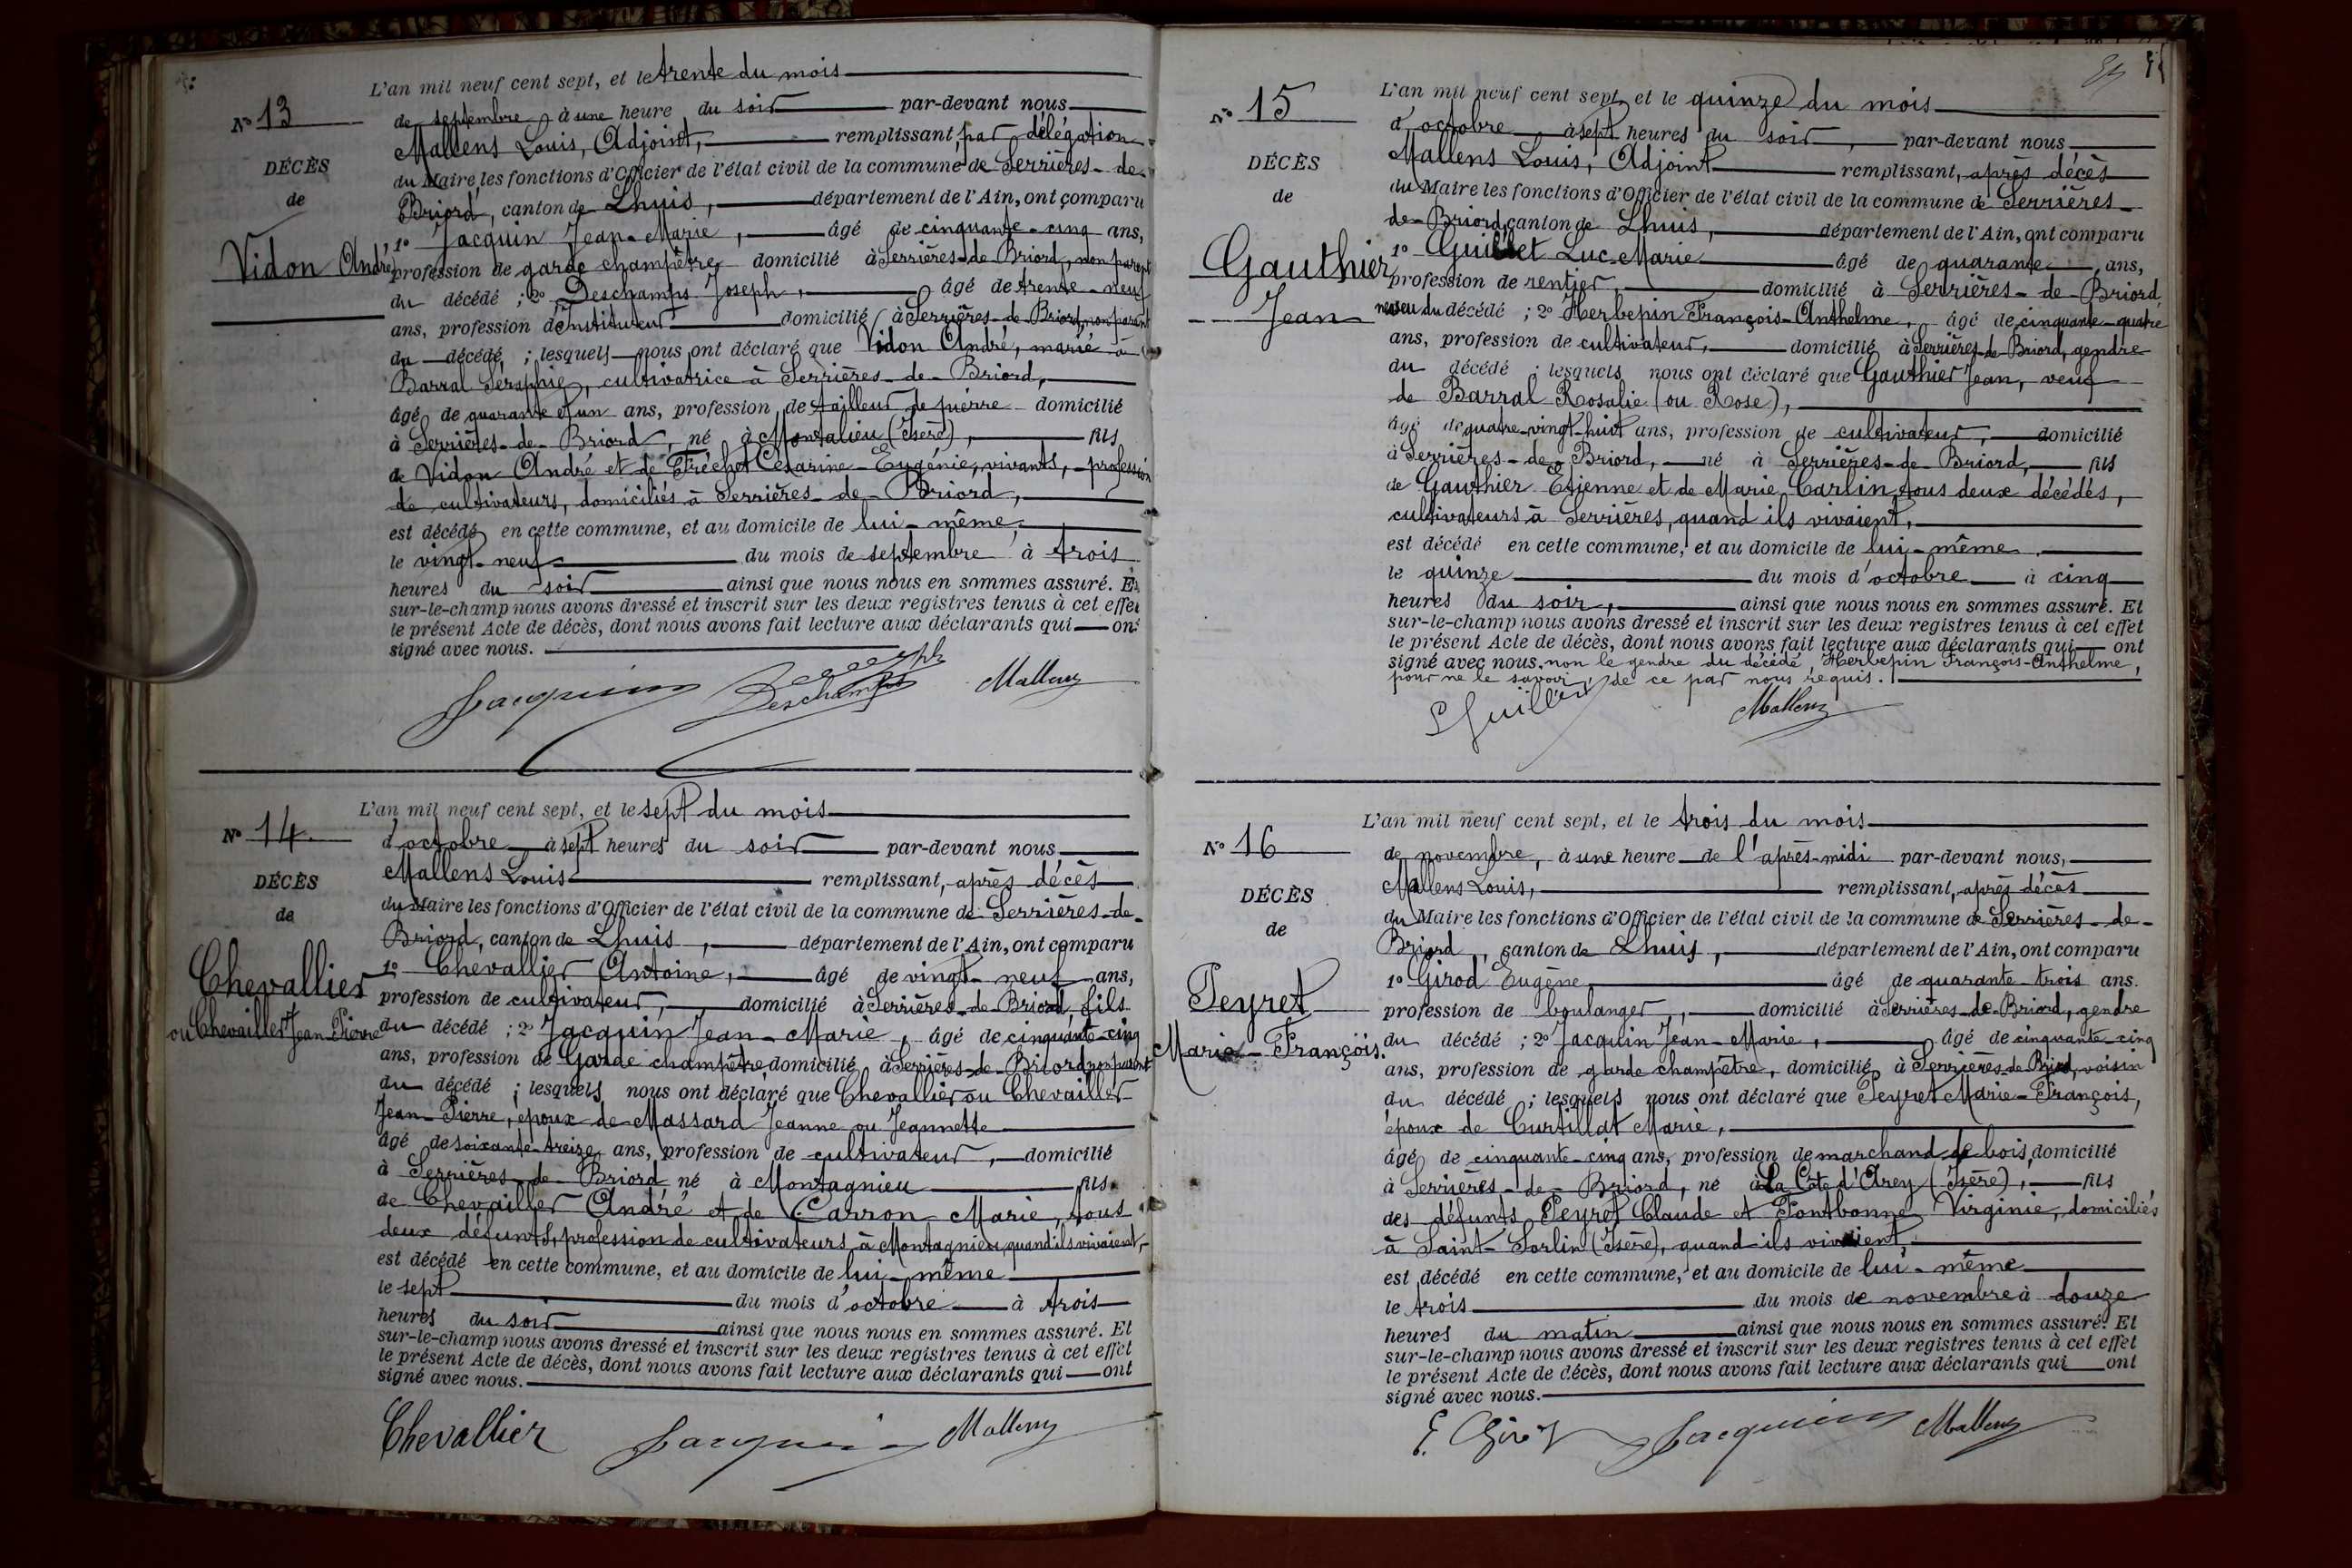 L'an mil neuf cent sept, et le trente du mois
N° 13
de septembre, à une heure du soir par-devant nous
Mallens Louis, Adjoint, remplissant, par délégation
DÉCÈS
du Maire les fonctions d'Officier de l'état civil de la commune de Serrières-de-
de
Briord, canton de Lhuis, département de l'Ain, ont comparu
1° Jacquin Jean-Marie, âgé de cinquante-cinq ans,
Vidon André
profession de garde champêtre domicilié à Serrières-de-Briord, non parent
du décédé ; 2° Deschamps Joseph, âgé de trente-neuf
ans, profession d'Instituteur domicilié à Serrières-de-Briord, non parent
du décédé ; lesquels nous ont déclaré que Vidon André, marié à
Barral Séraphie, cultivatrice à Serrières-de-Briord,
âgé de quarante et un ans, profession de tailleur de pierre domicilié
à Serrières-de-Briord, né à Montalieu (Isère), fils
de Vidon André et de Fréchet Césarine-Eugénie, vivants, profession
de cultivateurs, domiciliés à Serrières-de-Briord,
est décédé en cette commune, et au domicile de lui-même
le vingt-neuf du mois de septembre à trois
heures du soir ainsi que nous nous en sommes assuré. Et
sur-le-champ nous avons dressé et inscrit sur les deux registres tenus à cet effet
le présent Acte de décès, dont nous avons fait lecture aux déclarants qui ont
signé avec nous.
Jacquin Joseph Deschamps Mallens
L'an mil neuf cent sept, et le sept du mois
N° 14
d'octobre à sept heures du soir par-devant nous
Mallens Louis remplissant, après décès
DÉCÈS
du Maire les fonctions d'Officier de l'état civil de la commune de Serrières-de-
de
Briord, canton de Lhuis, département de l'Ain, ont comparu
1° Chevallier Antoine, âgé de vingt-neuf ans,
Chevallier
profession de cultivateur, domicilié à Serrières-de-Briord, fils
ou Chevailler Jean-Pierre
du décédé ; 2° Jacquin Jean-Marie, âgé de cinquante-cinq
ans, profession de Garde-champêtre, domicilié à Serrières-de-Briord non parent
du décédé ; lesquels nous ont déclaré que Chevallier ou Chevailler
Jean-Pierre, époux de Massard Jeanne ou Jeannette
âgé de soixante-treize ans, profession de cultivateur, domicilié
à Serrières-de-Briord né à Montagnieu fils
de Chevailler André et de Carron Marie, tous
deux défunts, profession de cultivateurs à Montagnieu, quand ils vivaient,
est décédé en cette commune, et au domicile de lui-même
le sept du mois d'octobre à trois
heures du soir ainsi que nous nous en sommes assuré. Et
sur-le-champ nous avons dressé et inscrit sur les deux registres tenus à cet effet
le présent Acte de décès, dont nous avons fait lecture aux déclarants qui ont
signé avec nous.
Chevallier Jacquin Mallens
L'an mil neuf cent sept, et le quinze du mois
N° 15
d'octobre à sept heures du soir, par-devant nous
Mallens Louis, Adjoint remplissant, après décès
DÉCÈS
du Maire les fonctions d'Officier de l'état civil de la commune de Serrières-
de
de-Briord, canton de Lhuis, département de l'Ain, ont comparu
1° Guillet Luc-Marie âgé de quarante ans,
Gauthier
profession de rentier, domicilié à Serrières-de-Briord,
Jean
neveu du décédé ; 2° Herbepin François-Anthelme, âgé de cinquante-quatre
ans, profession de cultivateur, domicilié à Serrières-de-Briord, gendre
du décédé ; lesquels nous ont déclaré que Gauthier Jean, veuf
de Barral Rosalie (ou Rose),
âgé de quatre-vingt-huit ans, profession de cultivateur, domicilié
à Serrières-de-Briord, né à Serrières-de-Briord, fils
de Gauthier Etienne et de Marie Carlin, tous deux décédés,
cultivateurs à Serrières, quand ils vivaient,
est décédé en cette commune, et au domicile de lui-même
le quinze du mois d'octobre à cinq
heures du soir, ainsi que nous nous en sommes assuré. Et
sur-le-champ nous avons dressé et inscrit sur les deux registres tenus à cet effet
le présent Acte de décès, dont nous avons fait lecture aux déclarants qui ont
signé avec nous, non le gendre du décédé, Herbepin François-Anthelme,
pour ne le savoir, de ce par nous requis.
L Guillet Mallens
L'an mil neuf cent sept, et le trois du mois
N° 16
de novembre, à une heure de l'après-midi par-devant nous,
Mallens Louis, remplissant, après décès
DÉCÈS
du Maire les fonctions d'Officier de l'état civil de la commune de Serrières-de-
de
Briord, canton de Lhuis, département de l'Ain, ont comparu
1° Girod Eugène âgé de quarante-trois ans.
Peyret
profession de boulanger, domicilié à Serrières-de-Briord, gendre
Marie-François.
du décédé ; 2° Jacquin Jean-Marie, âgé de cinquante-cinq
ans, profession de garde champêtre, domicilié à Serrières-de-Briord, voisin
du décédé ; lesquels nous ont déclaré que Peyret Marie-François,
époux de Curtillat Marie,
âgé de cinquante-cinq ans, profession de marchand de bois, domicilié
à Serrières-de-Briord, né à La Côte d'Arey (Isère), fils
des défunts Peyret Claude et Pontbonne Virginie, domiciliés
à Saint-Sorlin (Isère), quand ils vivaient,
est décédé en cette commune, et au domicile de lui-même
le trois du mois de novembre à douze
heures du matin ainsi que nous nous en sommes assuré. Et
sur-le-champ nous avons dressé et inscrit sur les deux registres tenus à cet effet
le présent Acte de décès, dont nous avons fait lecture aux déclarants qui ont
signé avec nous.
E. Girod Jacquin Mallens